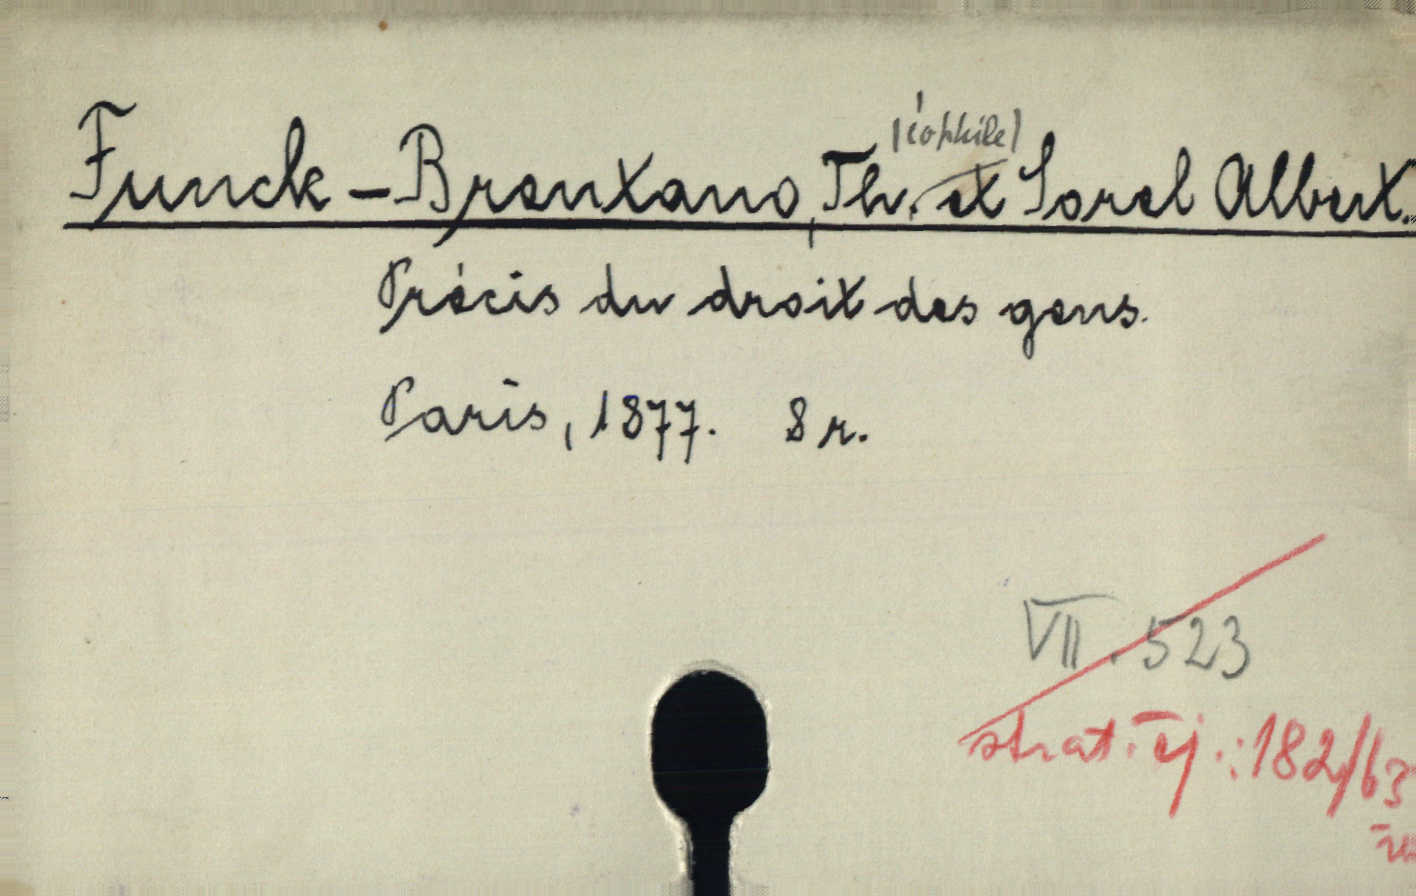 Funck-Brentano, Th.(éophile) et Sorel Albert.
Précis du droit des gens.
Paris, 1877. 8 r.
VII. 523
strat. éj.: 182/63